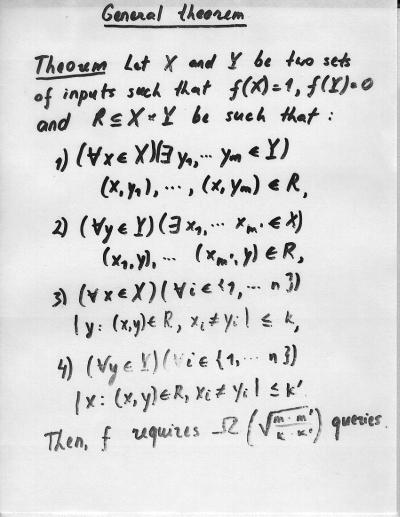 General theorem
Theorem Let X and Y be two sets
of inputs such that f(X)=1, f(Y)=0
and R ⊆ X * Y be such that :
1) (∀x ∈ X)(∃ y₁, ... yₘ ∈ Y)
(x, y₁), ..., (x, yₘ) ∈ R,
2) (∀y ∈ Y) (∃ x₁, ... xₘ' ∈ X)
(x₁, y), ... (xₘ', y) ∈ R,
3) (∀x ∈ X) (∀i ∈ {1, ... n})
|y: (x,y) ∈ R, xᵢ ≠ yᵢ| ≤ k,
4) (∀y ∈ Y) (∀i ∈ {1, ... n})
|x: (x, y) ∈ R, xᵢ ≠ yᵢ| ≤ k'
Then, f requires Ω (√(m · m' / k · k')) queries.